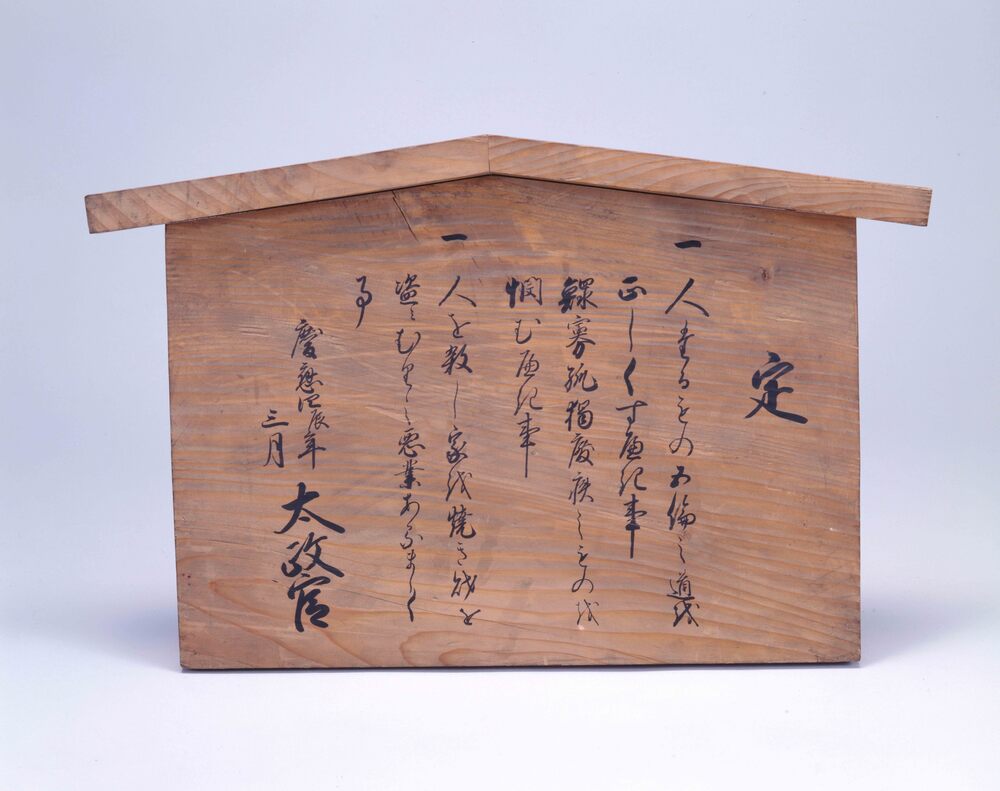 定
一 人たるもの五倫之道を
正しくすへき事
鰥寡孤獨廢疾之ものを
憫むへき事
一 人を殺し家を焼き財を
盗む等之悪業あるましく
事
慶應四辰年
三月
太政官